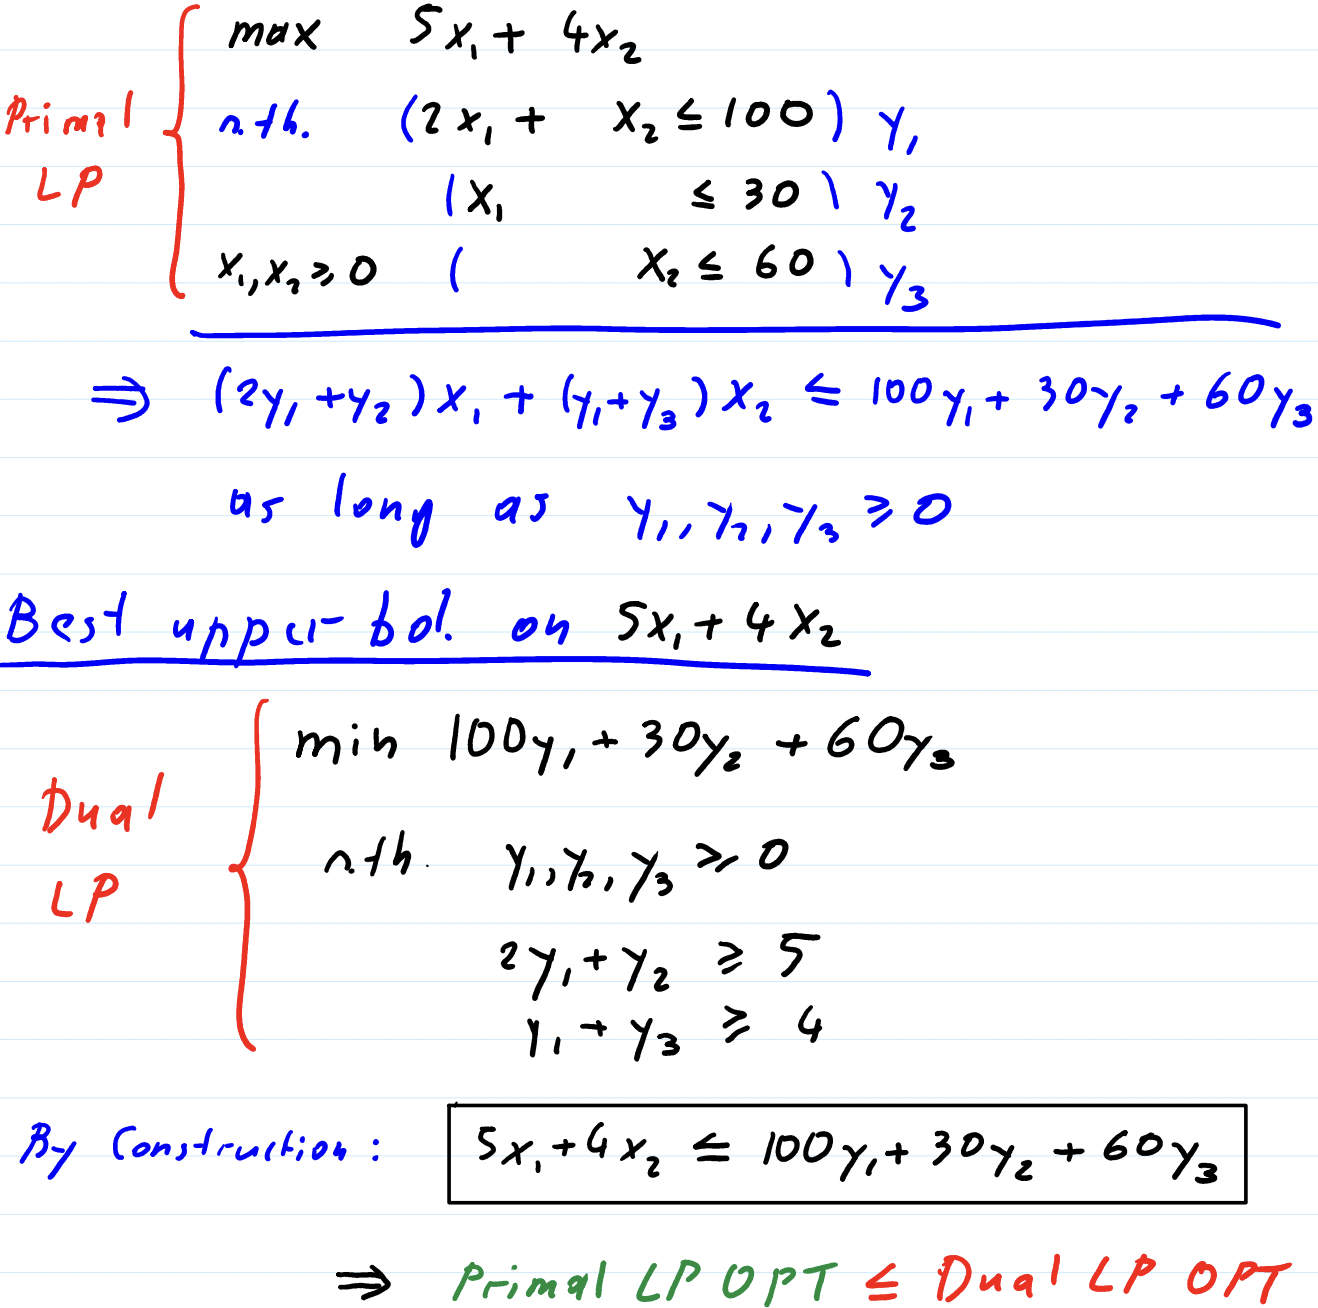 max 5x₁ + 4x₂
Primal LP
s.th. (2x₁ + x₂ ≤ 100) y₁
(x₁ ≤ 30) y₂
x₁, x₂ ≥ 0 ( x₂ ≤ 60) y₃
⇒ (2y₁ + y₂) x₁ + (y₁ + y₃) x₂ ≤ 100y₁ + 30y₂ + 60y₃
as long as y₁, y₂, y₃ ≥ 0
Best upper-bd. on 5x₁ + 4x₂
Dual LP
min 100y₁ + 30y₂ + 60y₃
s.th. y₁, y₂, y₃ ≥ 0
2y₁ + y₂ ≥ 5
y₁ + y₃ ≥ 4
By Construction: 5x₁ + 4x₂ ≤ 100y₁ + 30y₂ + 60y₃
⇒ Primal LP OPT ≤ Dual LP OPT